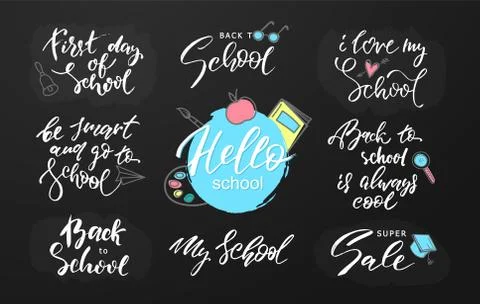 First day
of
School
BACK TO
School
i love my
School
be smart
and go to
School
Hello
school
Back to
school
is always
cool
Back
to
School
My School
SUPER
Sale